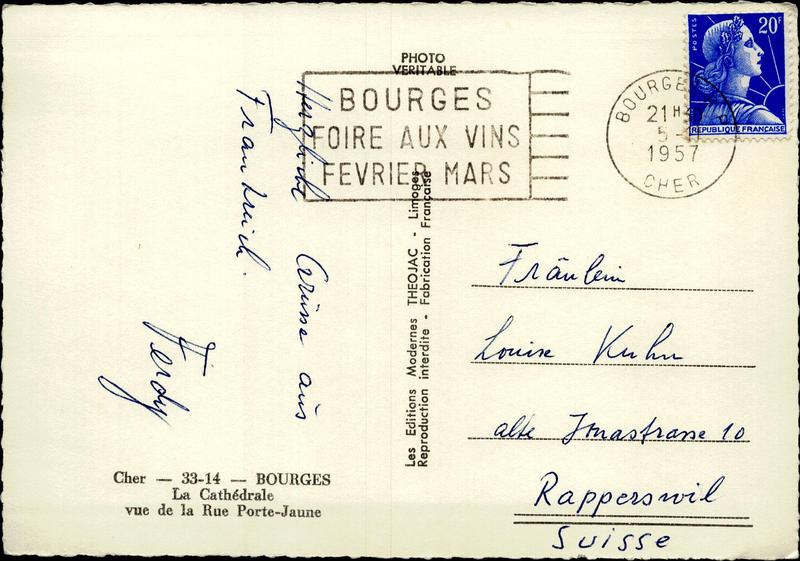 PHOTO
VERITABLE
BOURGES
FOIRE AUX VINS
FEVRIER MARS
BOURGES
21H
5-
1957
CHER
POSTES
20F
REPUBLIQUE FRANÇAISE
Herzliche Grüsse aus
Frankreich.
Ferdy
Les Editions Modernes THEOJAC - Limoges
Reproduction interdite - Fabrication Française
Fräulein
Louise Kuhn
alte Jonastrasse 10
Rapperswil
Suisse
Cher — 33-14 — BOURGES
La Cathédrale
vue de la Rue Porte-Jaune